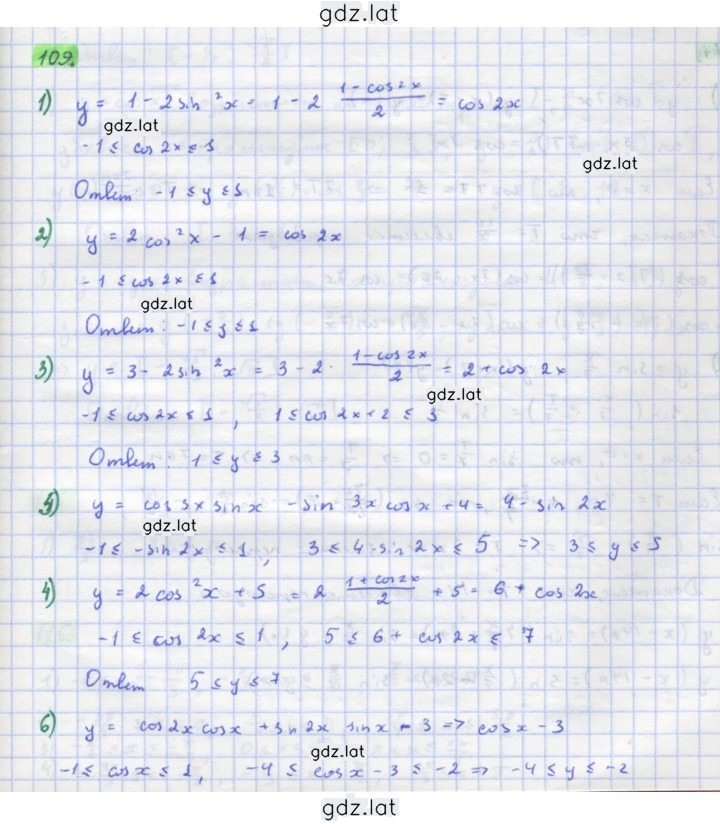 gdz.lat
109.
1) y = 1 - 2 sin²x = 1 - 2 (1 - cos 2x)/2 = cos 2x
gdz.lat
-1 ≤ cos 2x ≤ 1
gdz.lat
Ответ -1 ≤ y ≤ 1
2) y = 2 cos²x - 1 = cos 2x
-1 ≤ cos 2x ≤ 1
gdz.lat
Ответ: -1 ≤ y ≤ 1
3) y = 3 - 2 sin²x = 3 - 2 · (1 - cos 2x)/2 = 2 + cos 2x
gdz.lat
-1 ≤ cos 2x ≤ 1, 1 ≤ cos 2x + 2 ≤ 3
Ответ: 1 ≤ y ≤ 3
5) y = cos 3x sin x - sin 3x cos x + 4 = 4 - sin 2x
gdz.lat
-1 ≤ -sin 2x ≤ 1, 3 ≤ 4 - sin 2x ≤ 5 => 3 ≤ y ≤ 5
4) y = 2 cos²x + 5 = 2 (1 + cos 2x)/2 + 5 = 6 + cos 2x
-1 ≤ cos 2x ≤ 1, 5 ≤ 6 + cos 2x ≤ 7
Ответ 5 ≤ y ≤ 7
6) y = cos 2x cos x + sin 2x sin x - 3 => cos x - 3
gdz.lat
-1 ≤ cos x ≤ 1, -4 ≤ cos x - 3 ≤ -2 => -4 ≤ y ≤ -2
gdz.lat